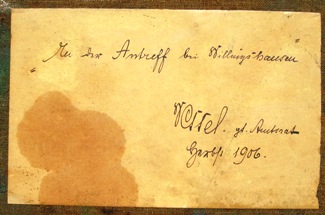 "An der Antreff bei Willingshausen"
gt. Amtsrat
Herbst 1906.